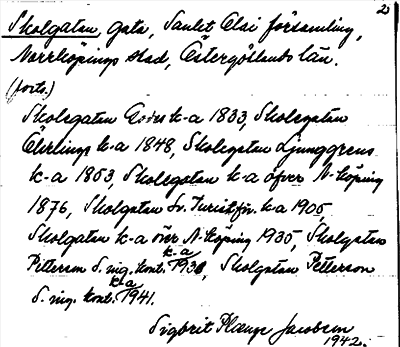 2
Skolgatan, gata, Sankt Olai församling,
Norrköpings stad, Östergötlands län.
(forts.)
Skolegatan k-a 1833, Skolegatan
k-a 1848, Skolegatan Ljunggrens
k-a 1853, Skolegatan k-a öfver N-köping
1876, Skolgatan Sv. Turistför. k-a 1905,
Skolgatan k-a över N-köping 1935, Skolgatan
Petterson S. ing. kont. k-a 1936, Skolgatan Petterson
S. ing. kont. k-a 1941.
Sigbrit Plænge Jacobson
1942.